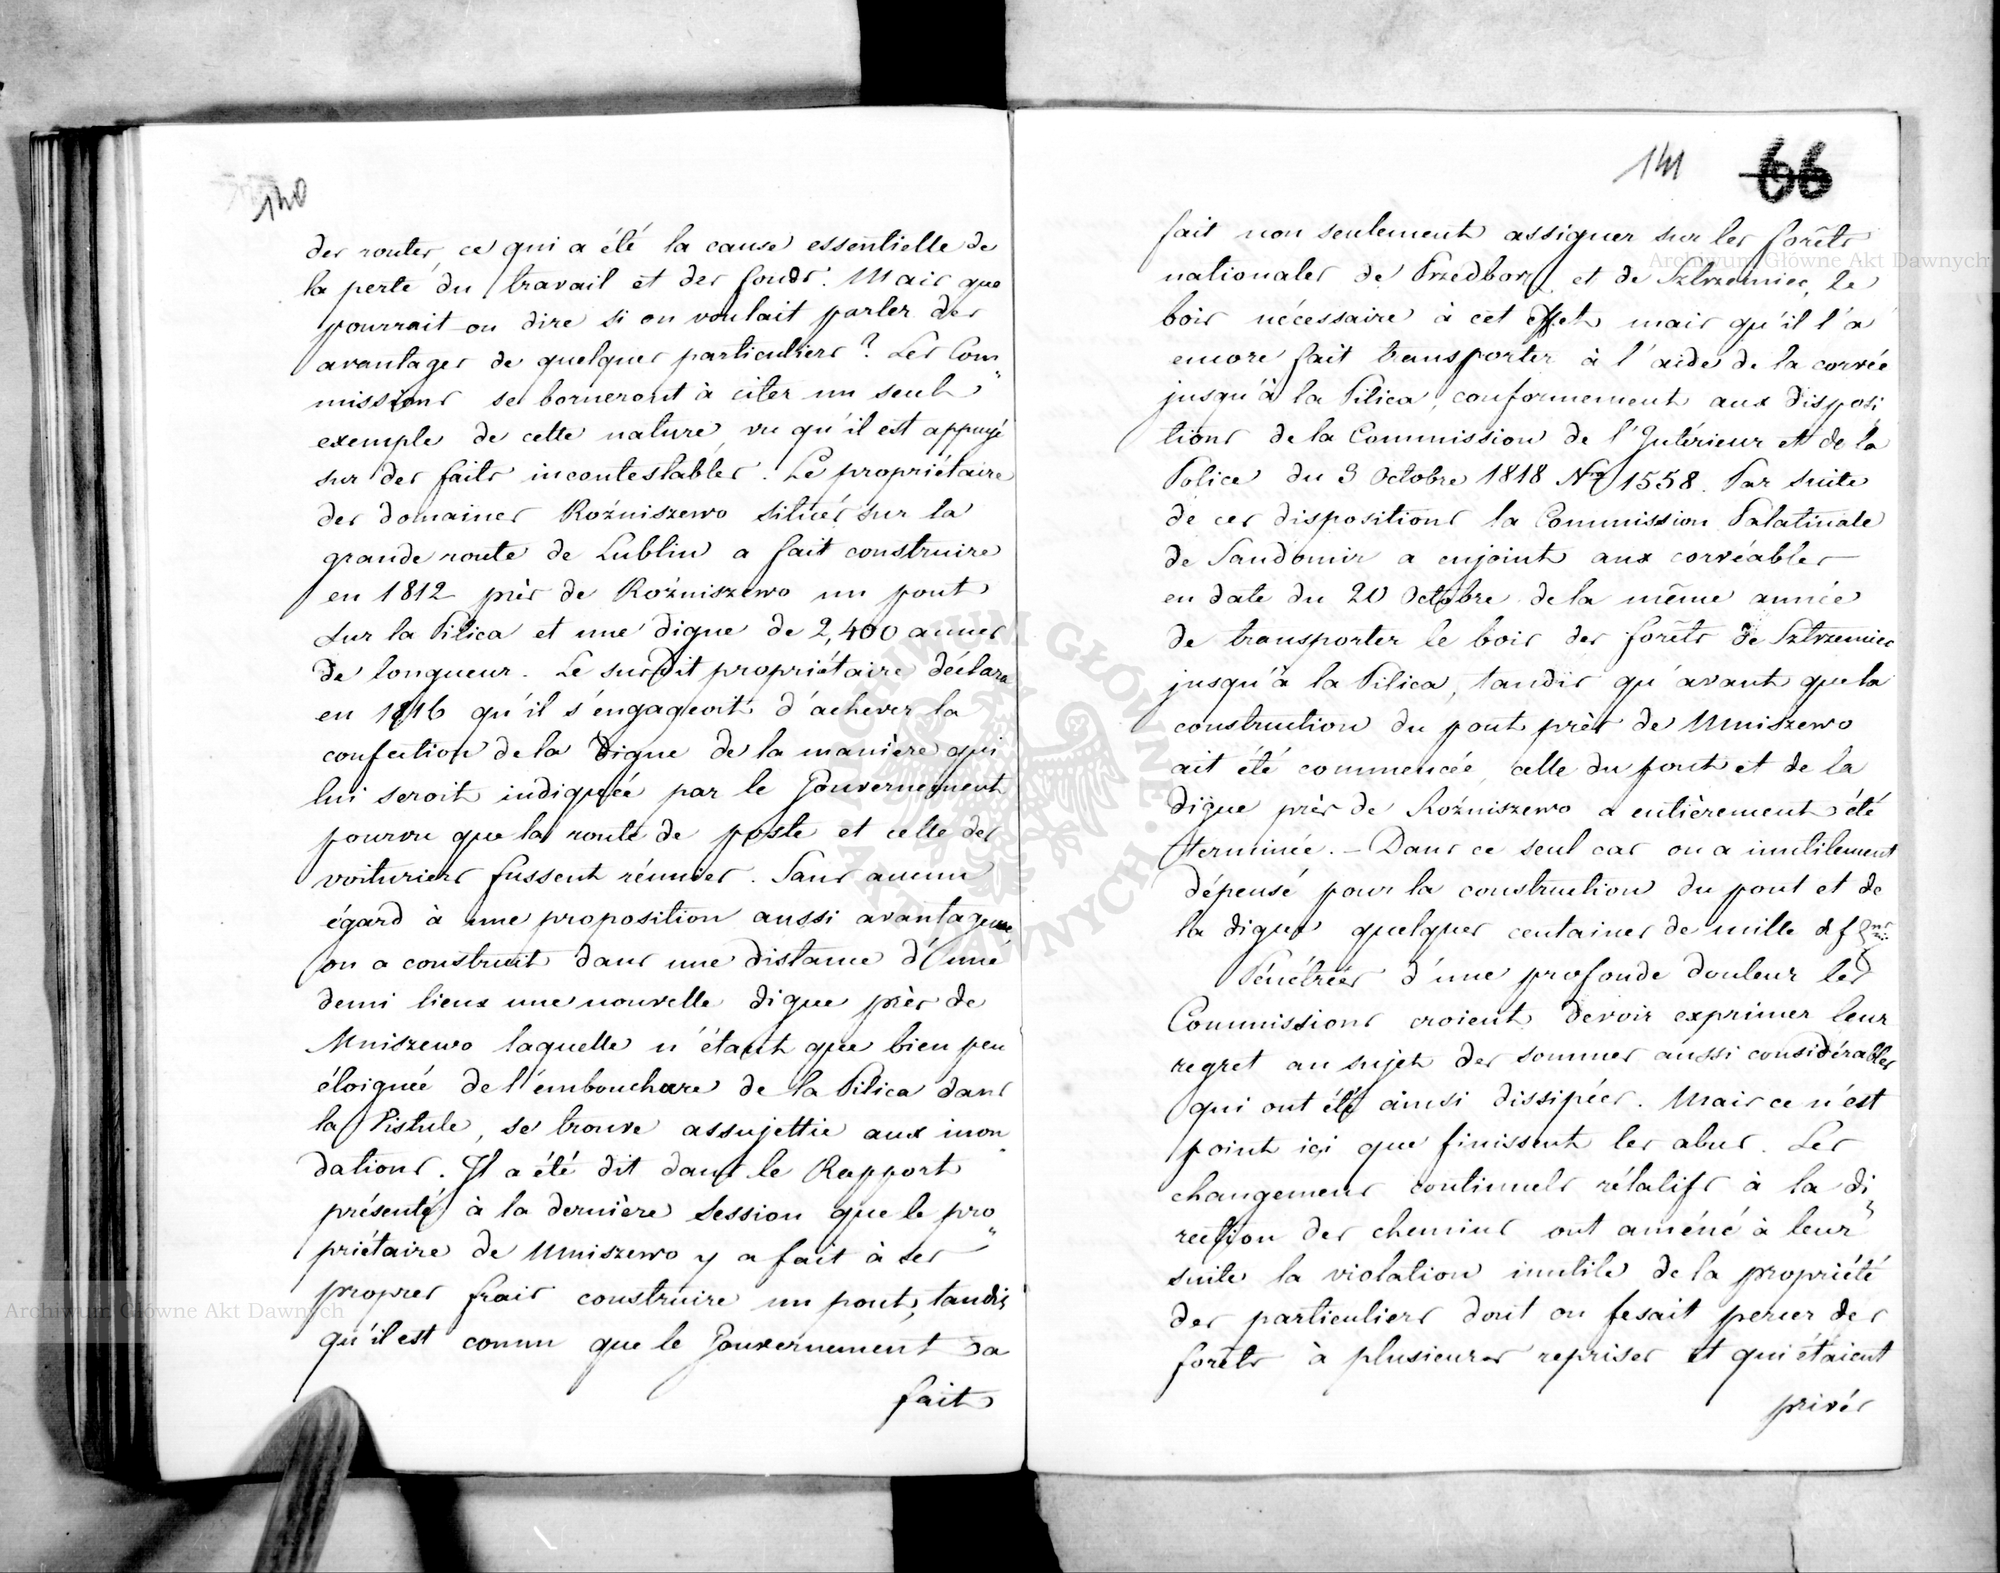 140
des routes, ce qui a été la cause essentielle de
la perte du travail et des fonds. Mais que
pourrait-on dire si on voulait parler des
avantages de quelques particuliers? Les Com„
missions se borneront à citer un seul
exemple de cette nature, vu qu'il est appuyé
sur des faits incontestables. Le propriétaire
des domaines Roźniszewo situés sur la
grande route de Lublin a fait construire
en 1812 près de Roźniszewo un pont
sur la Pilica et une digue de 2,400 aunes
de longueur. Le susdit propriétaire déclara
en 1816 qu'il s'engageoit d'achever la
confection de la digue de la manière qui
lui seroit indiquée par le Gouvernement
pourvu que la route de poste et celle des
voituriers fussent réunies. Sans aucun
égard à une proposition aussi avantageuse,
on a construit dans une distance d'une
demi lieux une nouvelle digue près de
Mniszewo laquelle n'étant que bien peu
éloignée de l'embouchure de la Pilica dans
la Vistule, se trouve assujettie aux inon„
dations. Il a été dit dans le Rapport
présenté à la dernière Session que le pro„
priétaire de Mniszewo y a fait à ses
propres frais construire un pont, tandis
qu'il est connu que le Gouvernement a
fait
141 66
fait non seulement assigner sur les forêts
nationales de Przedborz et de Sztrzemiec, le
bois nécessaire à cet effet, mais qu'il l'a
encore fait transporter à l'aide de la corvée
jusqu'à la Pilica, conformement aux disposi
tions de la Commission de l'Intérieur et de la
Police du 3 Octobre 1818 Nro 1558. Par suite
de ces dispositions la Commission Palatinale
de Sandomir a enjoint aux corvéables
en date du 20 Octobre de la même année
de transporter le bois des forêts de Sztrzemiec
jusqu'à la Pilica, tandis qu'avant que la
construction du pont près de Mniszewo
ait été commencée, celle du pont et de la
digue près de Roźniszewo a entièrement été
terminée. – Dans ce seul cas on a inutilement
dépensé pour la construction du pont et de
la digue quelques centaines de mille de
Pénétrées d'une profonde douleur les
Commissions croient devoir exprimer leur
regret au sujet des sommes aussi considérables
qui ont été ainsi dissipées. Mais ce n'est
point ici que finissent les abus. Les
changemens continuels rélatifs à la di„
rection des chemins ont améné à leur
suite la violation inutile de la propriété
des particuliers dont on fesait percer des
forêts à plusieurs reprises et qui étaient
privés
Archiwum Główne Akt Dawnych
Archiwum Główne Akt Dawnych
ARCHIWUM GŁÓWNE AKT DAWNYCH